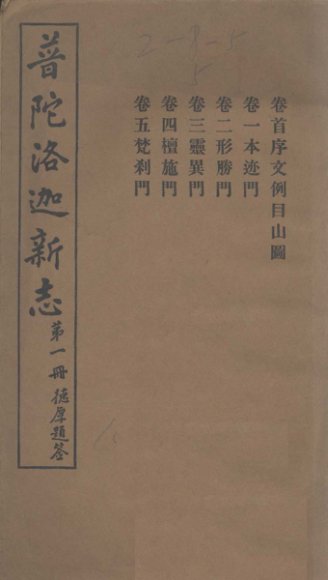 卷首序文例目山圖
卷一本迹門
卷二形勝門
卷三靈異門
卷四檀施門
卷五梵刹門
普陀洛迦新志
第一冊 德厚題簽